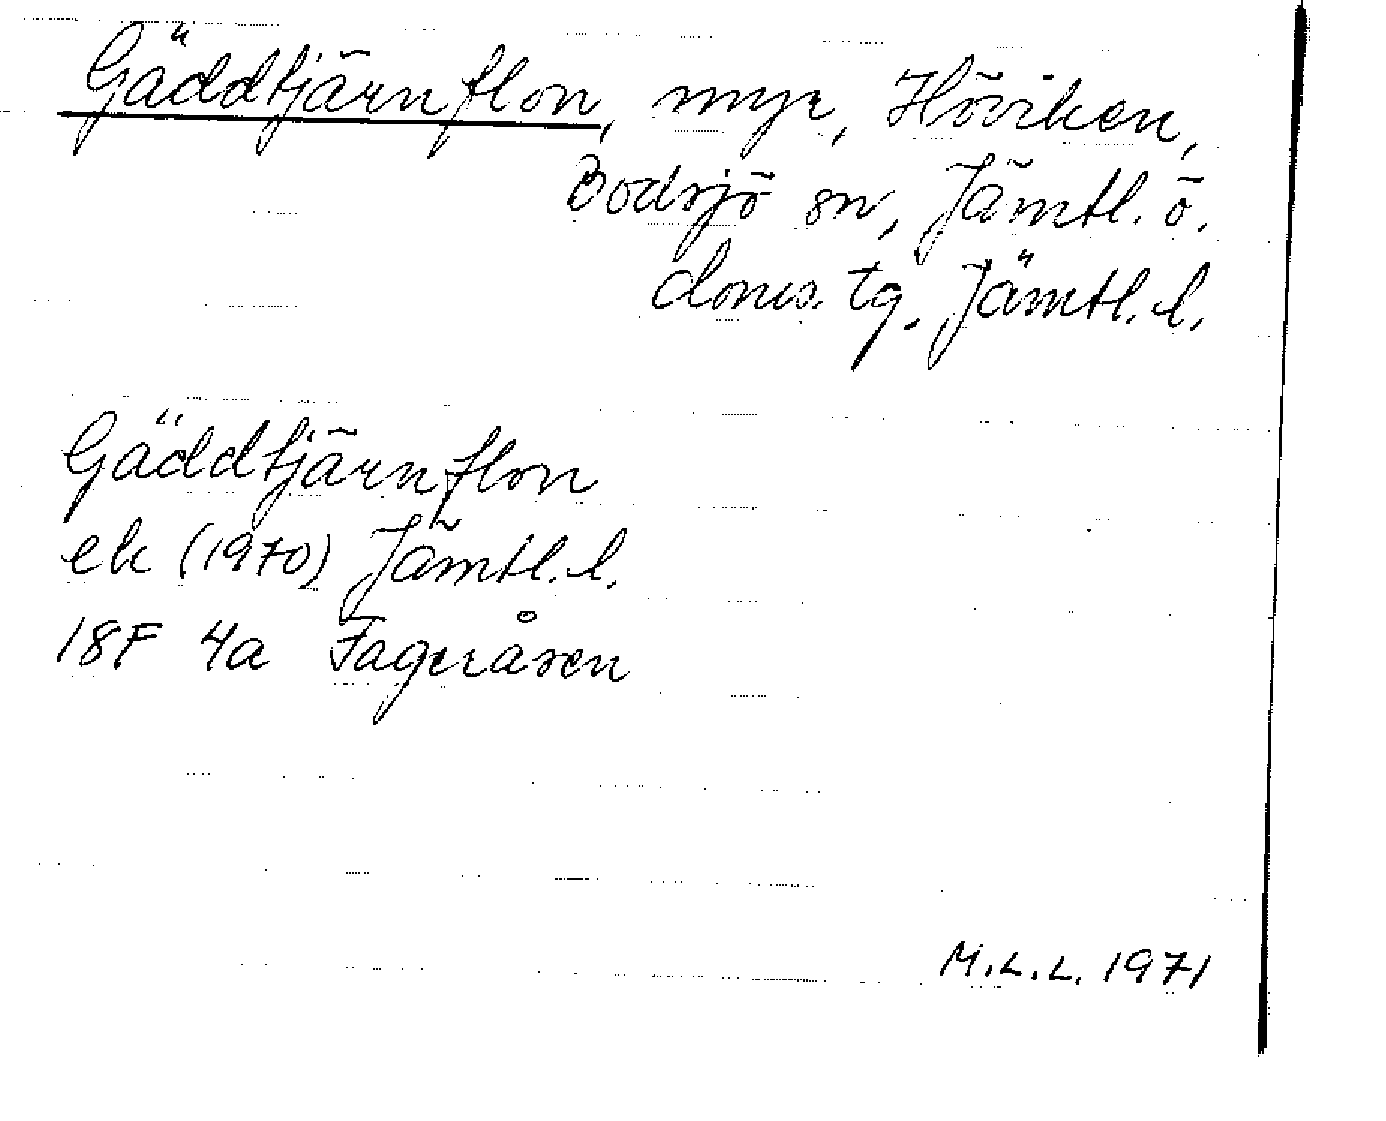 Gäddtjärnflon, myr, Höviken,
Bodsjö sn, Jämtl. ö.
doms. tg. Jämtl. l.
Gäddtjärnflon
ek (1970) Jämtl. l.
18F 4a Fageråsen
M.L.L. 1971